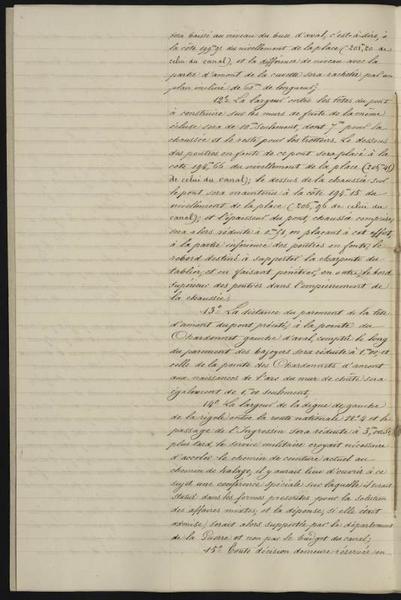 sera baissé au niveau du buse d'aval, c'est-à-dire, à
la côte 195,91 du nivellement de la place (205,20 de
celui du canal), et la différence de niveau avec la
partie d'amont de la cunette sera rachetée par un
plan incliné de 60m de longueur;
12° La largeur entre les têtes du pont
à construire sur les murs de fuite de la même
écluse sera de 10m seulement, dont 7m pour la
chaussée et le reste pour les trottoirs. Le dessous
des poutres en fonte de ce pont sera placé à la
côte 196,66 du nivellement de la place
de celui du canal); le dessus de la chaussée sur
le pont sera maintenu à la côte 197.15 du
nivellement de la place (206,96 de celui du
canal); et l'épaisseur du pont, chaussée comprise,
sera alors réduite à en plaçant à cet effet,
à la partie inférieure des poutres en fonte, le
rebord destiné à supporter la charpente du
tablier, et en faisant pénétrer, en outre, le bord
supérieur des poutres dans l'empierrement de
la chaussée;
13° La distance du parement de la tête
d'amont du pont précité, à la pointe du
Chardonnet gauche d'aval, comptée le long
du parement des bajoyers sera réduite à et
celle de la pointe des Chardonnets d'amont
aux naissances de l'arc du mur de chute sera
également de seulement,
14° La largeur de la digue de gauche
de la rigole entre la route nationale N° 4 et le
passage de l'Ingressin sera réduite à 3,m
plus tard le service militaire croyait nécessaire
d'accoler le chemin de ceinture actuel au
chemin de halage, il y aurait lieu d'ouvrir à ce
sujet une conférence spéciale sur laquelle il serait
statué dans les formes prescrites pour la solution
des affaires mixtes, et la dépense, si elle était
admise, serait alors supportée par le département
de la Guerre et non par le budget du canal;
15° Toute décision demeure réservée en